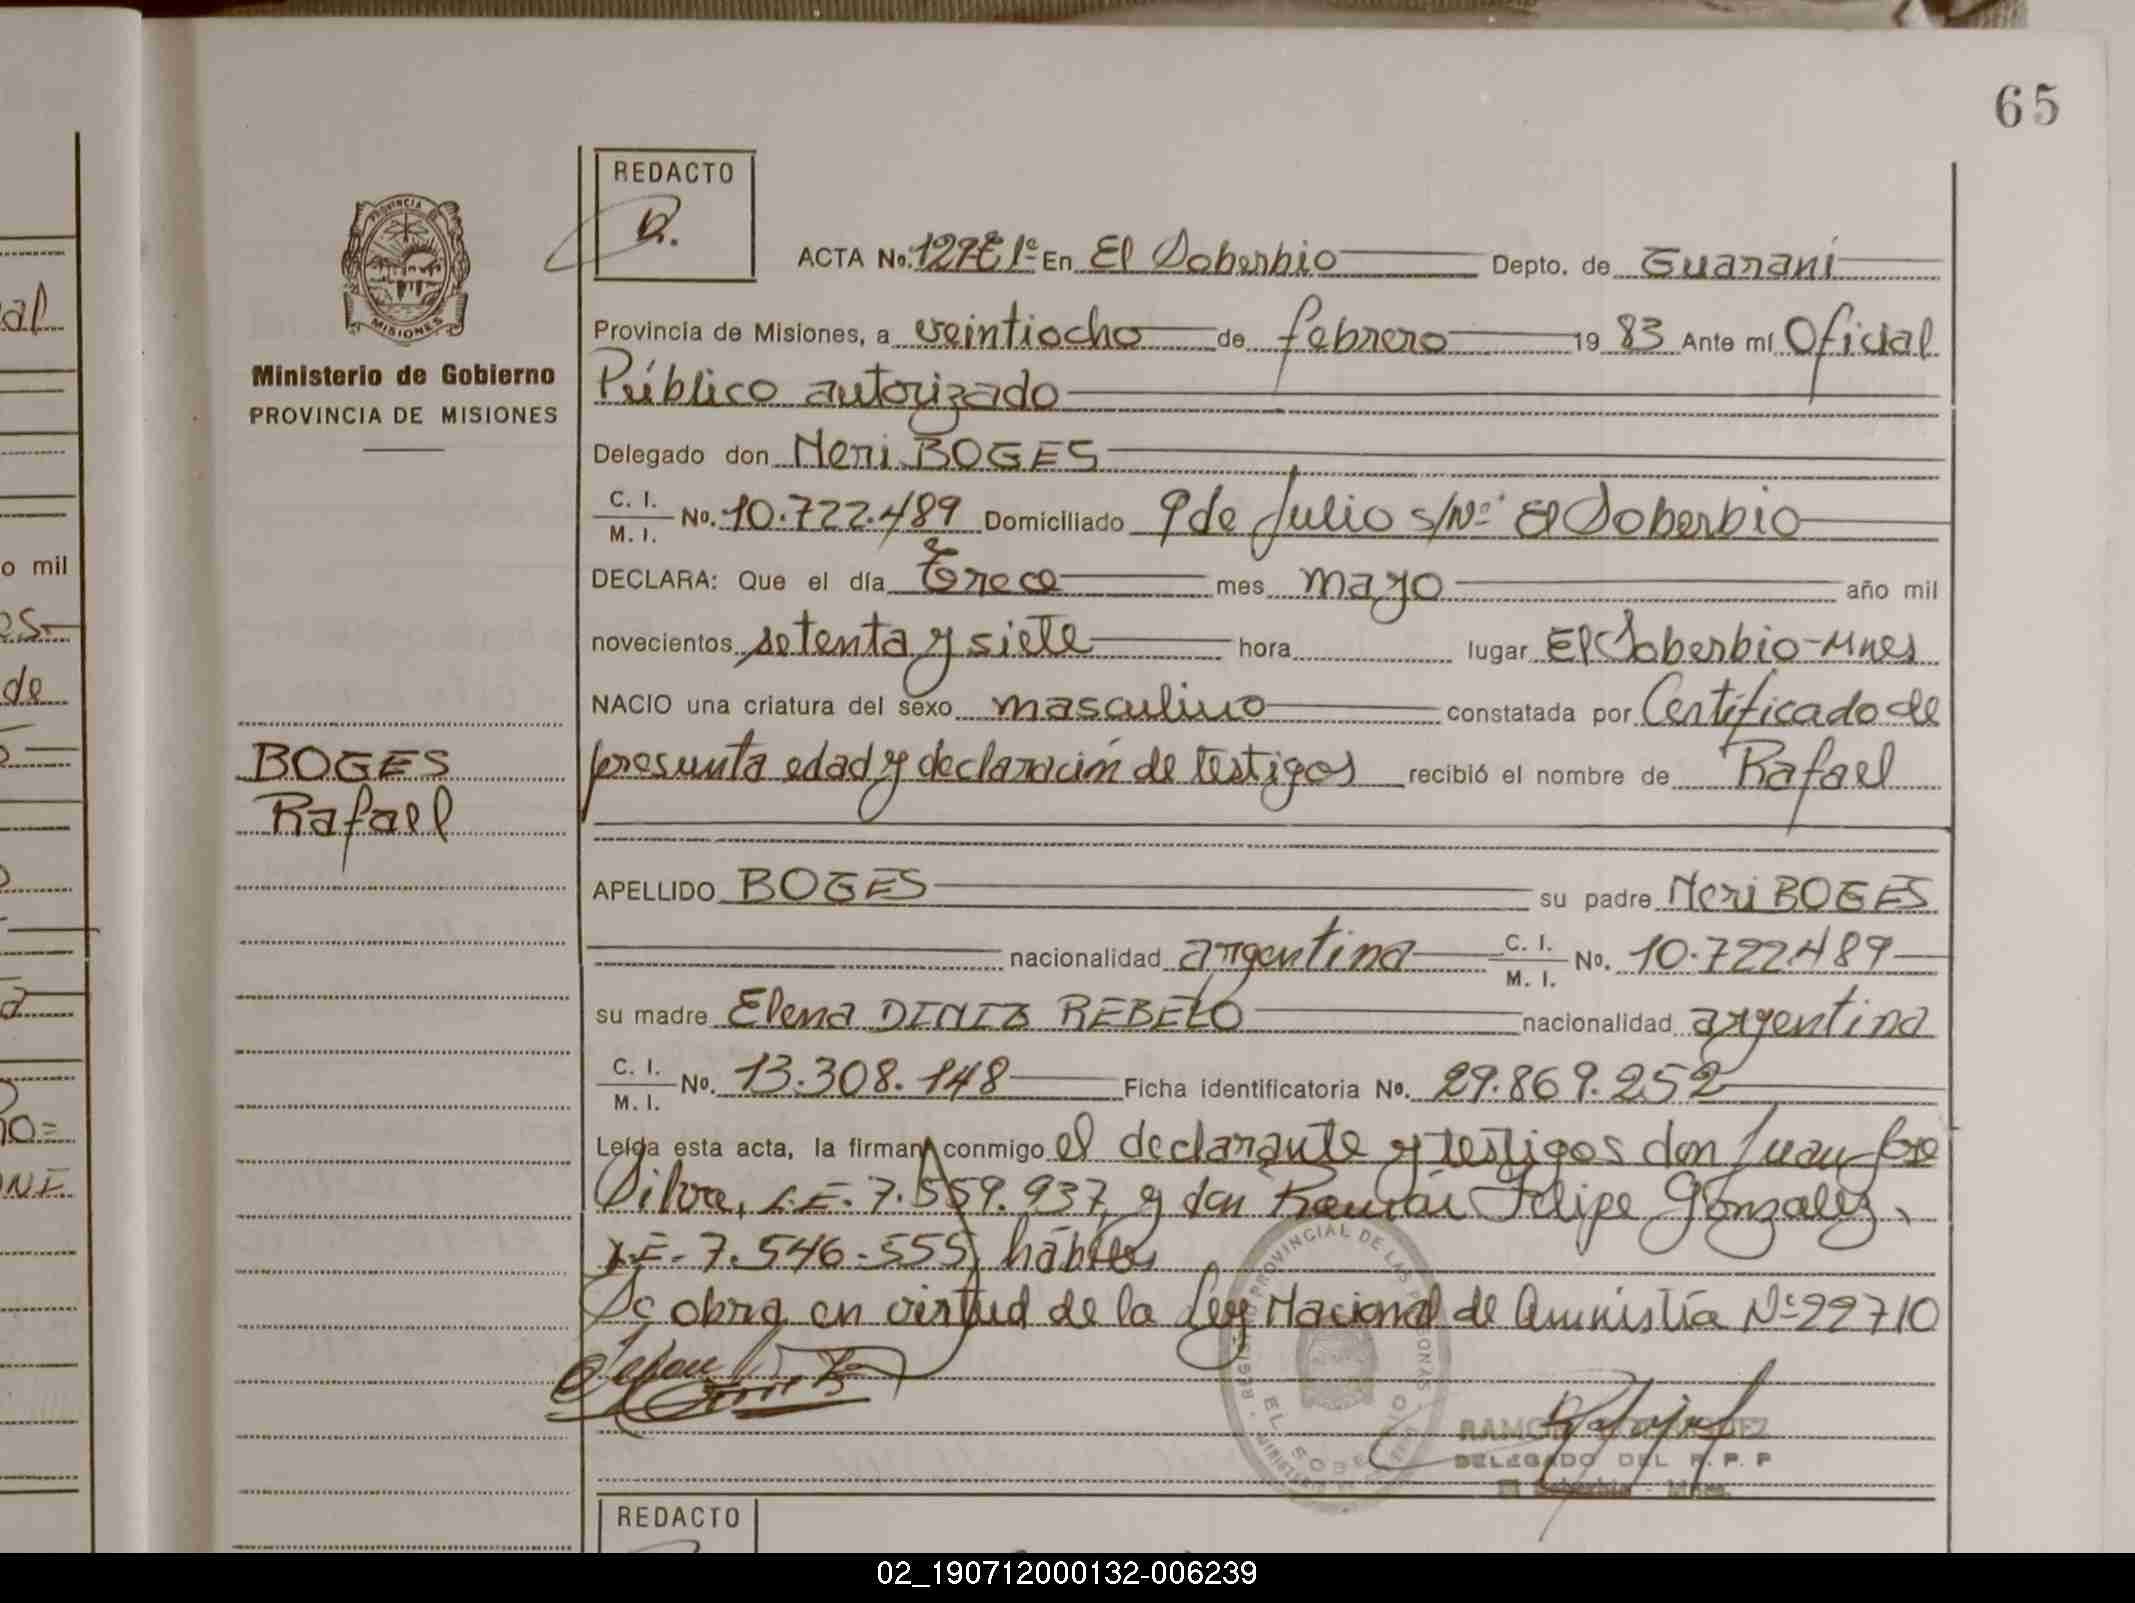 65
REDACTO
PROVINCIA DE
MISIONES
Ministerio de Gobierno
PROVINCIA DE MISIONES
ACTA No. En El Soberbio Depto. de Guaraní
Provincia de Misiones, a veintiocho de febrero 19 83 Ante mí Oficial
Público autorizado
Delegado don Neri BOGES
C. I. / M. I. No. 10.722.489 Domiciliado 9 de Julio s/Nº El Soberbio
DECLARA: Que el día trece mes mayo año mil
novecientos setenta y siete hora lugar El Soberbio-Mnes
NACIO una criatura del sexo masculino constatada por Certificado de
presunta edad y declaración de testigos recibió el nombre de Rafael
BOGES
Rafael
APELLIDO BOGES su padre Neri BOGES
nacionalidad argentina C. I. / M. I. No. 10.722.489
su madre Elena DINIZ REBELO nacionalidad argentina
C. I. / M. I. No. 13.308.148 Ficha identificatoria No. 29.869.252
Leída esta acta, la firman conmigo el declarante y testigos don Juan José
Silva, L.E. 7.559.937, y don Ramón Felipe Gonzalez,
L.E. 7.546.555, hábiles
Se obra en virtud de la Ley Nacional de Amnistía Nº 22710
REGISTRO PROVINCIAL DE LAS PERSONAS
EL SOBERBIO
DELEGADO DEL R. P. P
El Soberbio - Mnes.
REDACTO
al
o mil
de
02_190712000132-006239